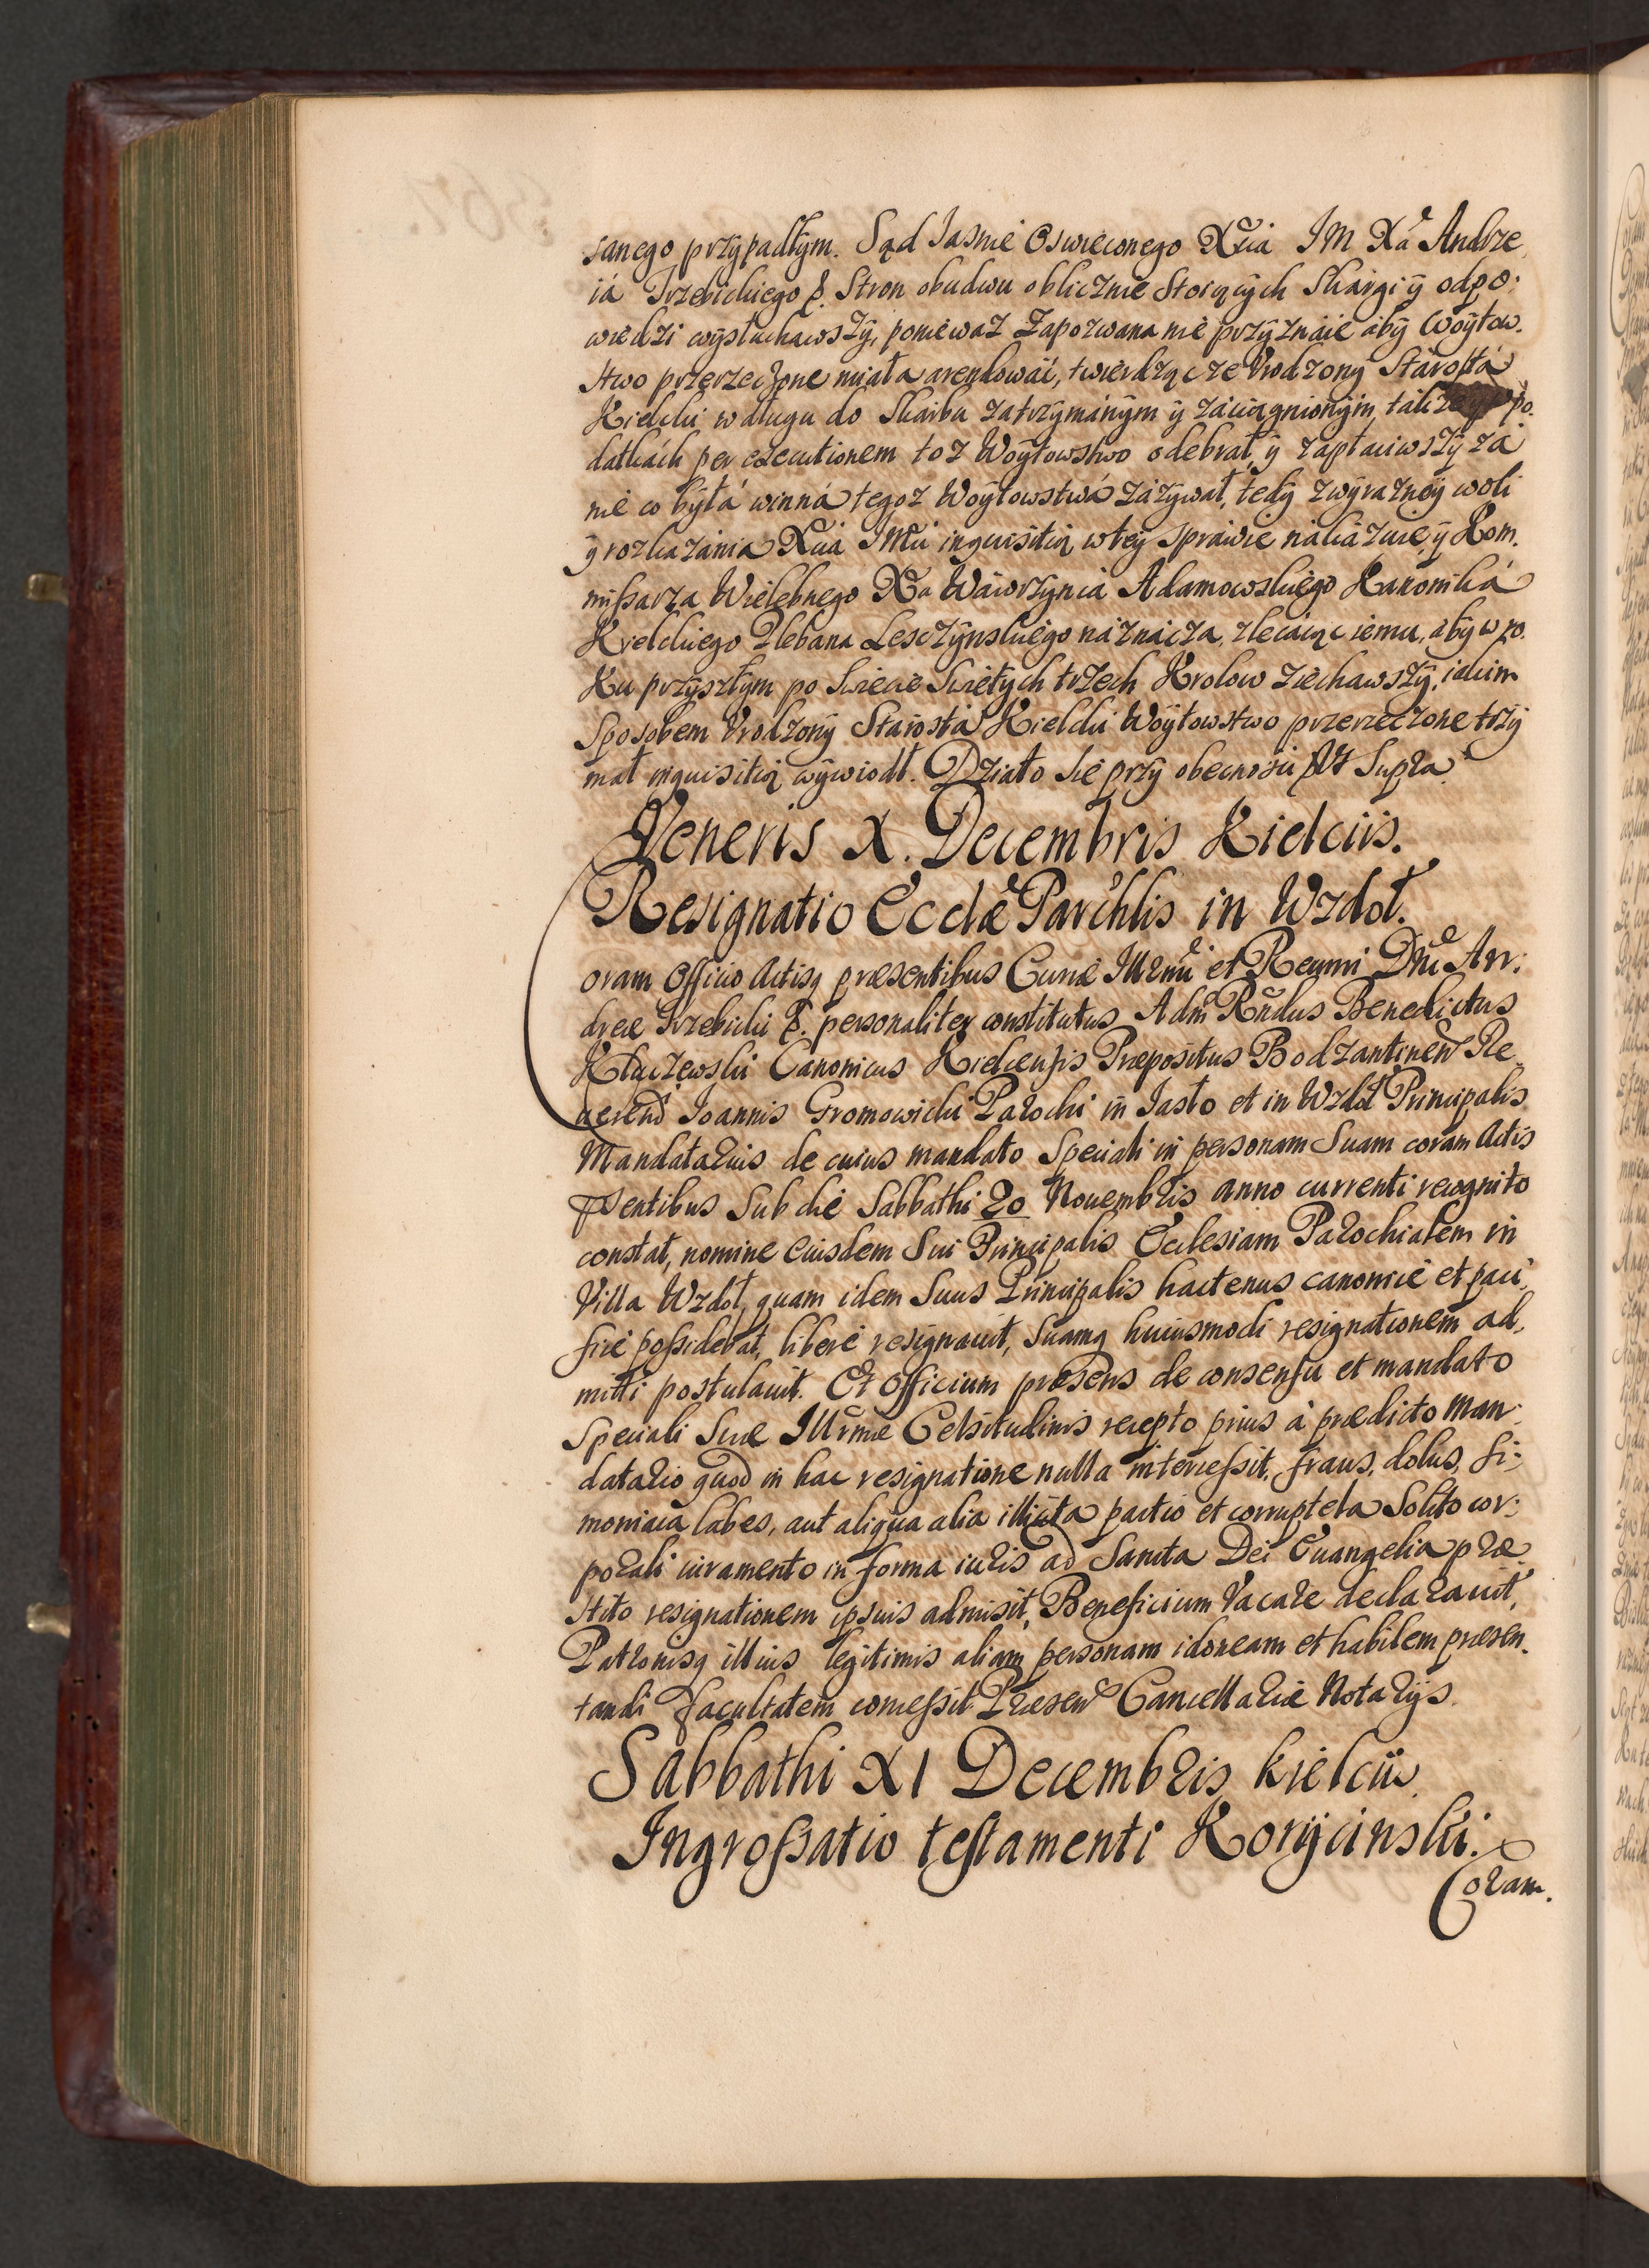 sanego przypadłym. Sąd Iasnie Oswieconego Xcia IM Xa Andrze
iá Trzebickiego &. Stron obudwu oblicznie Stoiących Skárgi ÿ odpo:
wiedzi wysłuchawszÿ, poniewaz Zapozwana nie przÿznáie, abÿ Woÿtow.
stwo przerzeczone miała arendowáć, twierdząc ze Vrodzonÿ Stárostá
Kielcki w długu do Skárbu zatrzÿmánÿm ÿ záciągnionÿm, tákze ÿ po.
datkách per executionem toz Woÿtowstwo odebrał, ÿ zapłaciwszÿ zá
nie co bÿłá winná tegoz Woÿtowstwá záżÿwał, tedÿ zwÿraznéÿ woli
ÿ rozkazánia Xcia IMci inquisitią wteÿ Spráwie nákázuie, ÿ Kom.
mißarza Wielebnego Xa Wáwrzÿncá Adamowskiego Kanoniká
Kielckiego Plebana Lesczÿnskiégo náznácza, zlecáiąc iemu, abÿ w ro.
Ku przÿszłÿm po Swiecie Swiętÿch trzech Krolow Ziechawszÿ, iakim
Sposobem Vrodzonÿ Stárostá Kielcki Woÿtowstwo przerzeczone trzÿ
mał inquisitią wÿwiodł. Działo Sie przÿ obecnosci Vt Supra.
Veneris X. Decembris Kielciis.
Resignatio Eccłæ Parchlis in Wzdoł.
oram Officio Actisq præsentibus Curiæ Illrmi et Reumi Dni An:
dreæ Trzebicki &. personaliter constitutus Adm Rndus Benedictus
Kluczewski Canonicus Kielcensis Præpositus Bodzantinen Re
uerend Ioannis Gromowicki Parochi in Iasło et in Wzdoł Principalis
Mandatarius de cuius mandato Speciali in personam Suam coram Actis
pssentibus Sub die Sabbathi 20 Nouembris anno currenti recognito
constat, nomine Euisdem Sui Principalis Ecclesiam Parochialem in
Villa Wzdoł, quam idem Suus Principalis hactenus canonicè et paci,
ficè poßidebat, liberè resignauit, Suamq huiusmodi resignationem ad,
mitti postulauit. Et Officium præsens de consensu et mandato
Speciali Suæ Illrmæ Celsitudinis recepto prius à prædicto Man:
datario quod in hac resignatione nulla interceßit, fraus, dolus, Si:
moniaca labes, aut aliqua alia illicita pactio et corruptela Solito cor:
porali iuramento in forma iuris ad Sancta Dei Euangelia præ
stito resignationem ipsius admisit, Beneficium Vacare declarauit,
Patronisq illius legitimis aliam personam idoneam et habilem præsen.
tandi facultatem conceßit Præsen Cancellariæ Notarÿs.
Sabbathi XI Decembris kielciis.
Ingroßatio testamenti Korÿcinski.
Coram.